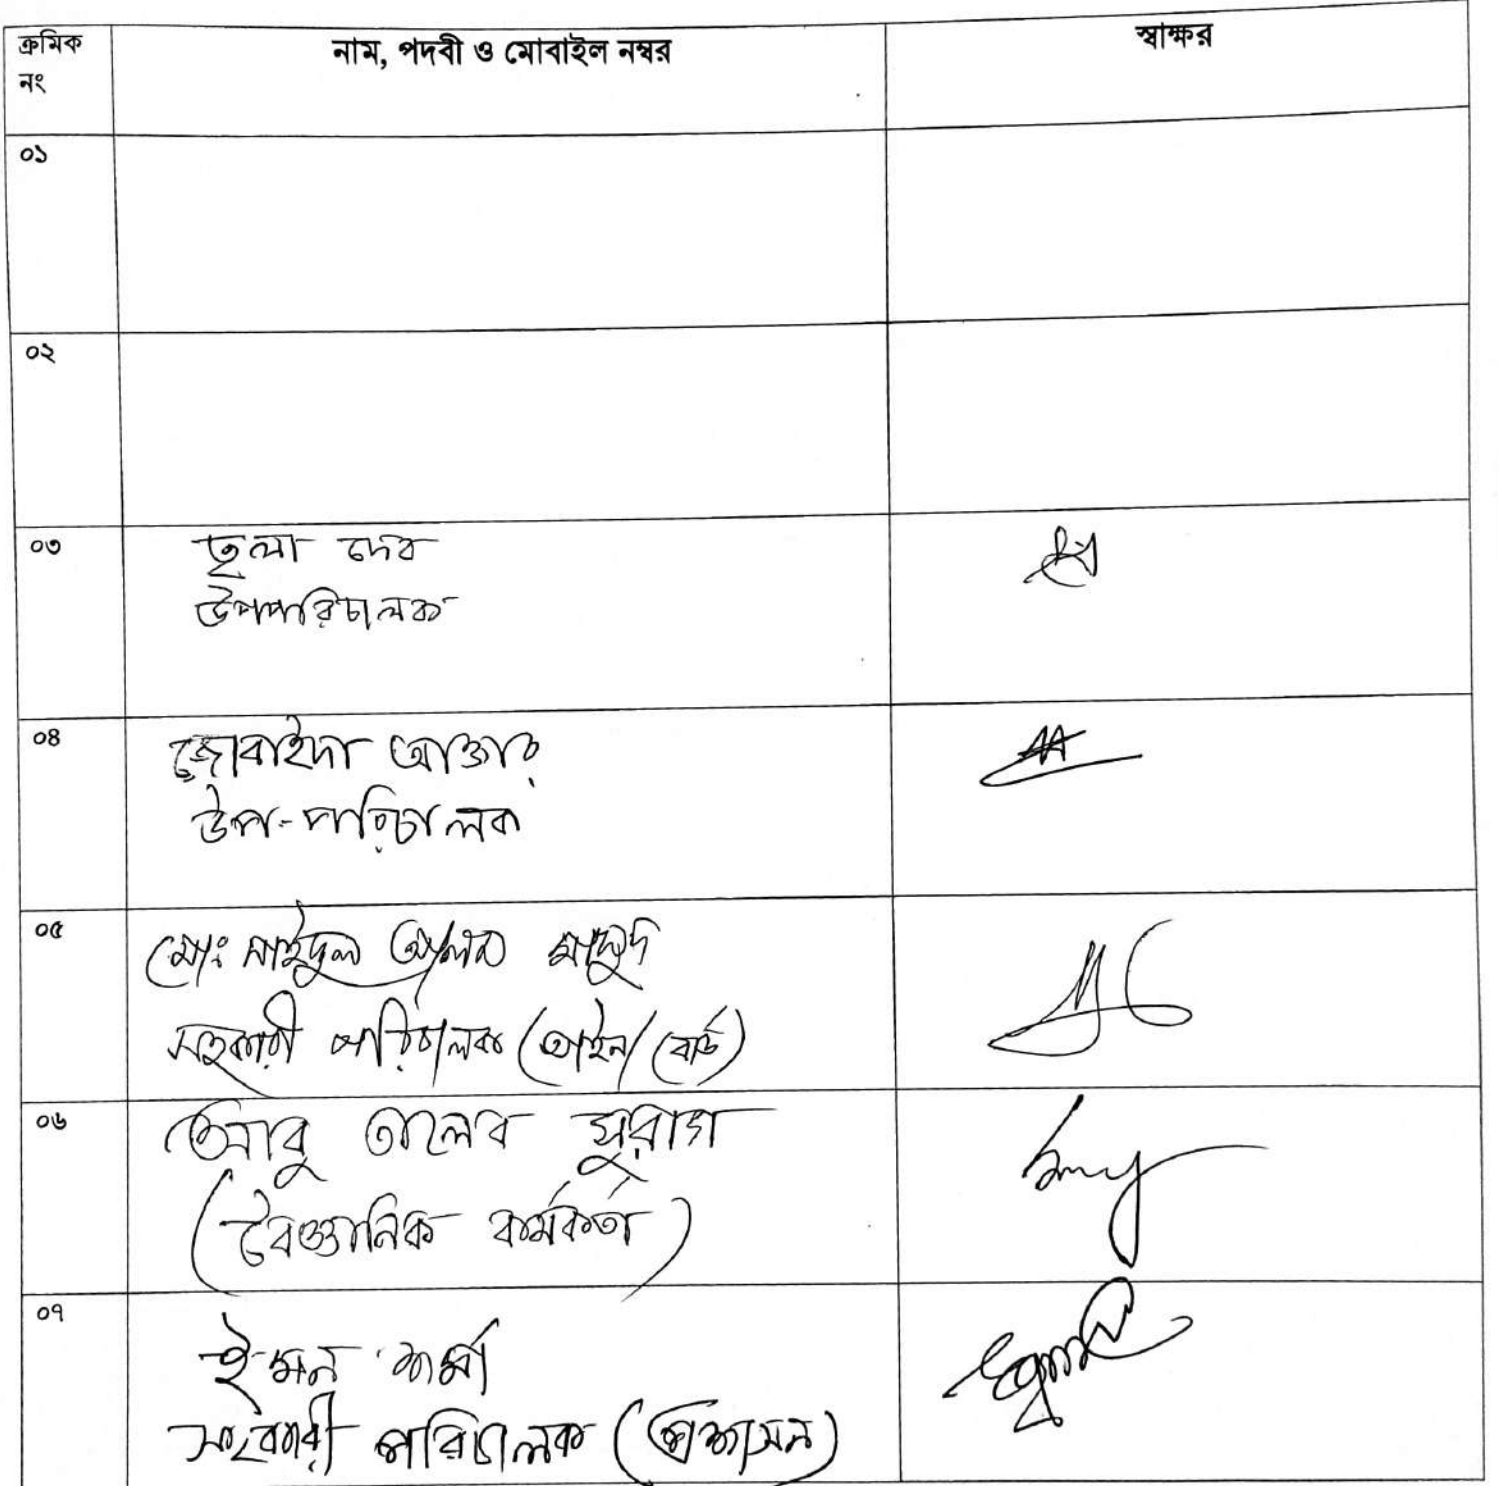 ক্রমিক নং
নাম, পদবী ও মোবাইল নম্বর
স্বাক্ষর
০১
০২
০৩
দেব
উপপরিচালক
০৪
জোবাইদা আক্তার
উপ-পরিচালক
০৫
মোঃ সাইদুল আলম মাসুদ
সহকারী পরিচালক (আইন/বোর্ড)
০৬
আবু তালেব সুরাগ
(বৈজ্ঞানিক কর্মকর্তা)
০৭
ইমন শর্মা
সহকারী পরিচালক (প্রশাসন)